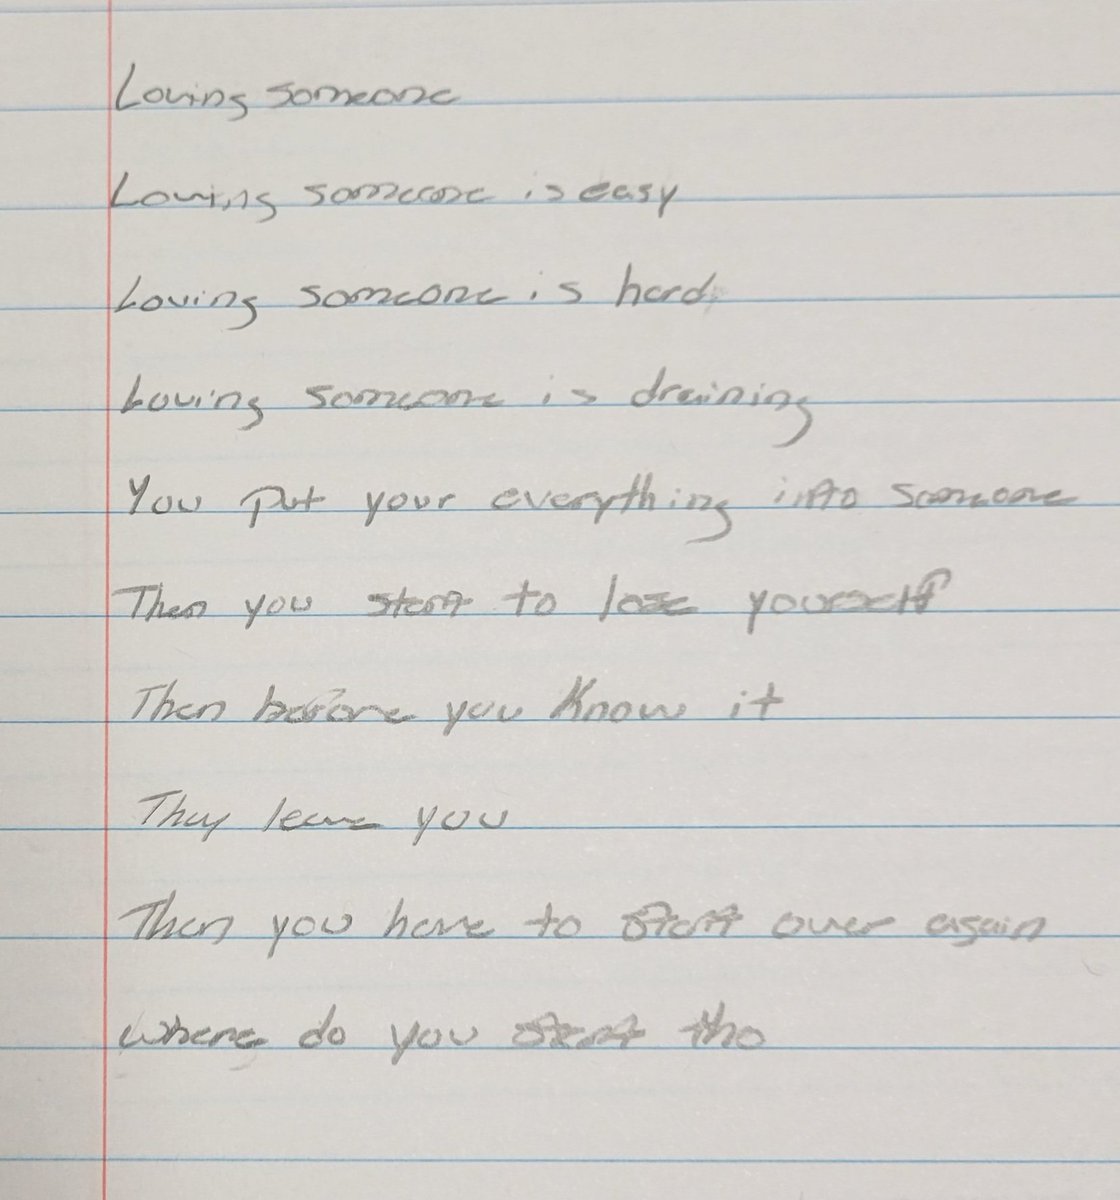 Loving someone
Loving someone is easy
Loving someone is hard
Loving someone is draining
You put your everything into someone
Then you start to lose yourself
Then before you know it
They leave you
Then you have to start over again
where do you start tho